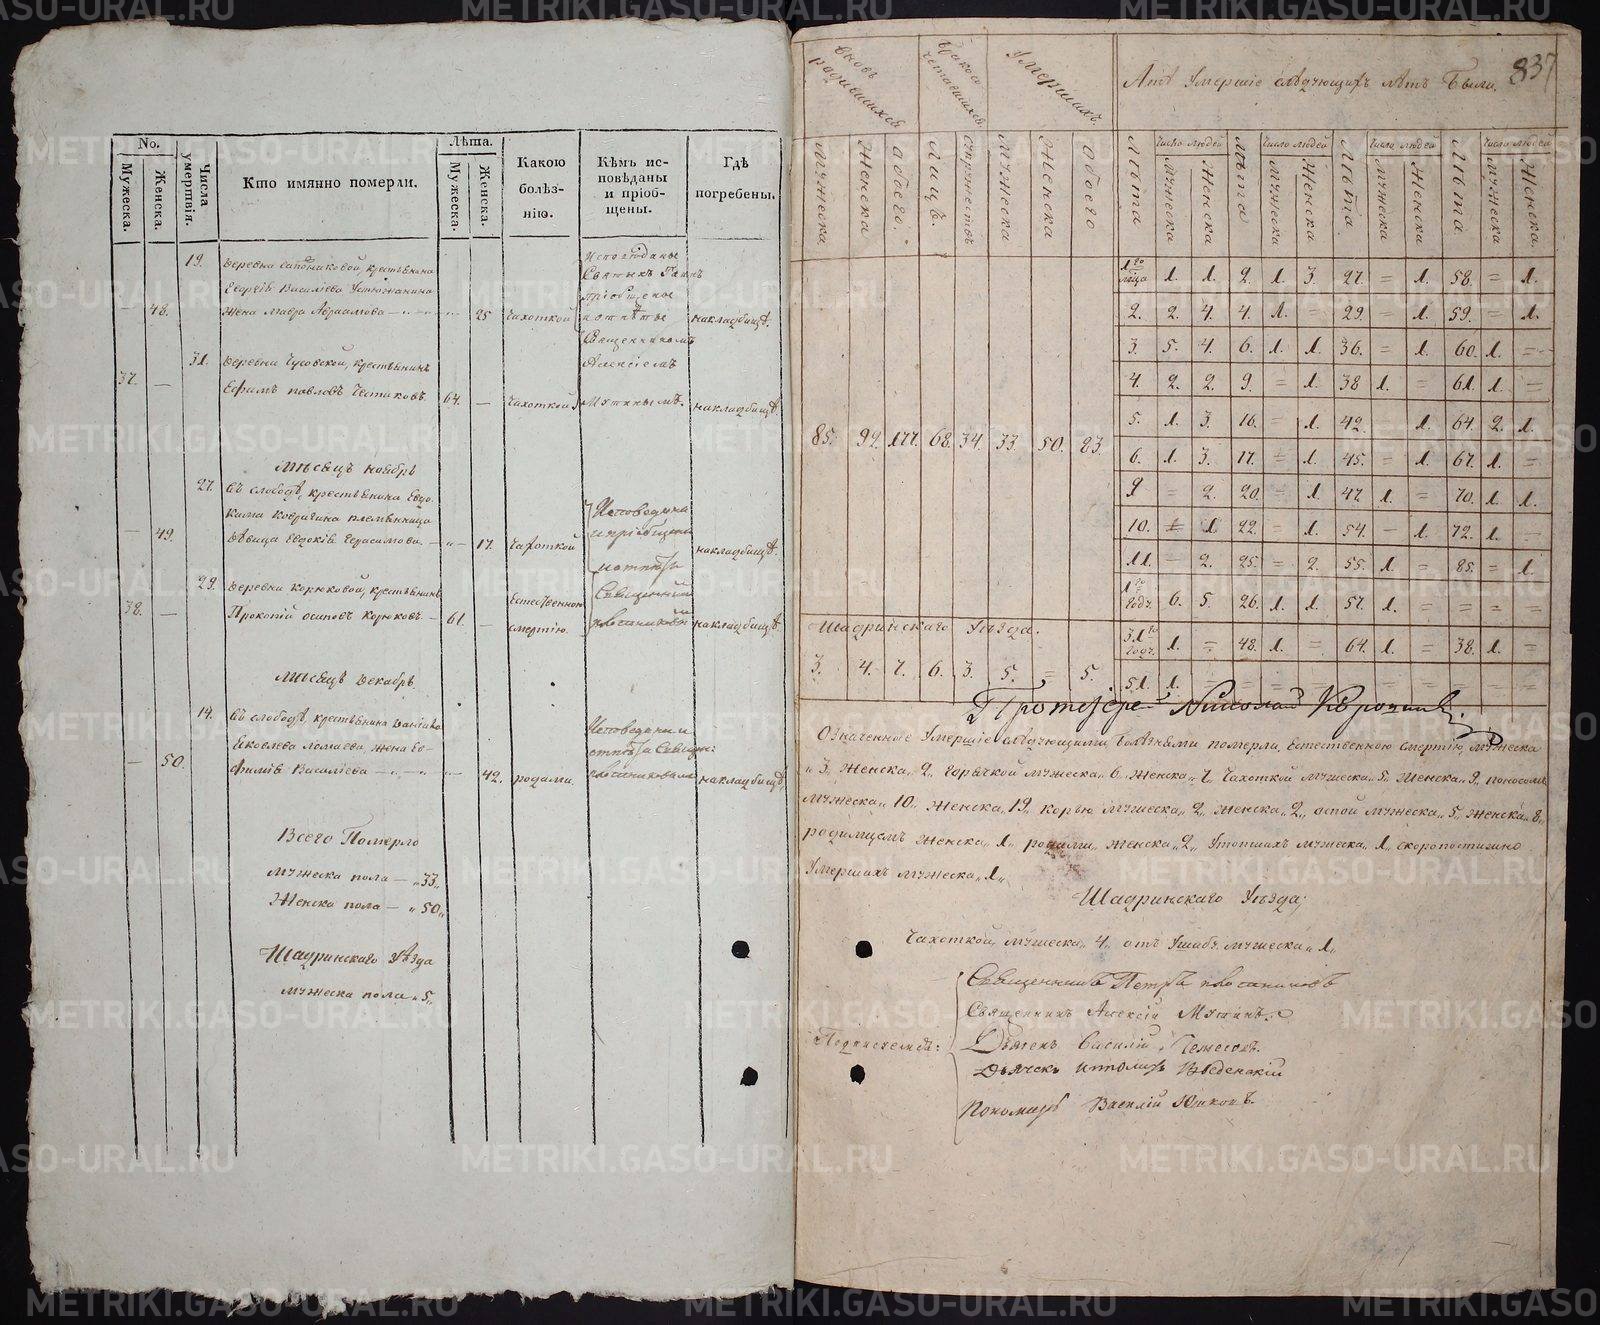 No.
Лѣта.
Мужеска.
Женска.
Числа умертвія.
Кто имянно померли.
Мужеска.
Женска.
Какою болѣз-нію.
Кѣмъ ис-повѣданы и пріоб-щены.
Гдѣ погребены.
19. Деревни Сапожниковой, крестьянина
Георгія Василіева Устюжанина
— 48. жена Мавра Авраамова — 25 чахоткой
Исповѣданы
Святыхъ Таинъ
пріобщены
и отпѣты
Священникомъ
Алексіемъ
Мутинымъ.
на кладбищѣ.
31. Деревни Чусовской, крестьянинъ
37. — Ефимъ Павловъ 64. — чахоткой на кладбищѣ
Мѣсяцъ Ноябрь
27. Въ слободѣ, крестьянина Евдо-
кима племянница
— 49. дѣвица Евдокія Герасимова — 17. чахоткой
Исповедана
и пріобщена
и отпѣта
на кладбищѣ.
29. Деревни Корюковой, крестьянинъ
38. — Прокопій Осиповъ Корюковъ — 61. — Естественною смертію.
Священникъ
на кладбищѣ
Мѣсяцъ Декабрь
14. Въ слободѣ, крестьянина
Яковлева Ломаева, жена Ео-
— 50. фимія Василіева — 42. родами. на кладбищѣ
Всего Померло
мужеска пола — „33„
Женска пола — „50„
Шадринскаго Уѣзда
мужеска пола „5„
837
вновь родившихся
браковъ
Умершихъ.
Лѣтъ Умершіе слѣдующихъ лѣтъ Были.
мужеска
женска
обоего.
лицъ.
супружествъ
мужеска
женска
обоего
Лѣта
Число людей
мужеска
Женска
Лѣта
Число людей
мужеска
Женска
Лѣта
Число людей
мужеска
Женска
Лѣта
Число людей
мужеска
Женска.
1го мѣсца 1. 1. 2. 1. 3. 27. = 1. 58. = 1.
2. 2. 4. 4. 1. = 29. = 1. 59. = 1.
3. 5. 4. 6. 1. 1. 36. = 1. 60. 1. =
4. 2. 2. 9. = 1. 38 1. = 61. 1. =
5. 1. 3. 16. = 1. 42. 1. 64. 2. 1.
85. 92. 177. 68. 34. 33. 50. 83.
6. 1. 3. 17. = 1. 45. = 1. 67. 1. =
9 = 2. 20. = 1. 47. 1. = 70. 1. 1.
10. = 1 22. = 1. 54. — 1. 72. 1. =
11. — 2. 25. = 2. 55. 1. = 85. = 1.
1го годъ 6. 5. 26. 1. 1. 57. 1. = = = =
Шадринскаго Уѣзда.
31го годъ. 1. = 48. 1. = 64. 1. = 38. 1. =
3. 4. 7. 6. 3. 5. = 5.
51. 1. = = = = = = = = = =
Протоіерей Николай
Означенные Умершіе слѣдующими болѣзнями померли, Естественною смертію, мужеска
„3„ женска„ 2„ горячкой мужеска„ 6„ женска„ 7„ Чахоткой мужеска„ 5„ женска„ 9„ поносомъ
мужеска„ 10„ женска„ 19„ корью мужеска„ 2„ женска„ 2„ оспой мужеска„ 5„ женска„ 8„
родимцемъ женска„ 1„ родами„ женска„ 2„ Утопшихъ мужеска„ 1„ скоропостижно
Умершихъ мужеска „1„
Шадринскаго Уѣзда;
Чахоткой, мужеска„ 4„ отъ мужеска„ 1„
Священникъ Петръ
Священникъ Алексій Мутинъ.
Діаконъ Василій
Дьячекъ Ипполитъ Введенскій
Пономарь Василій
METRIKI.GASO-URAL.RU